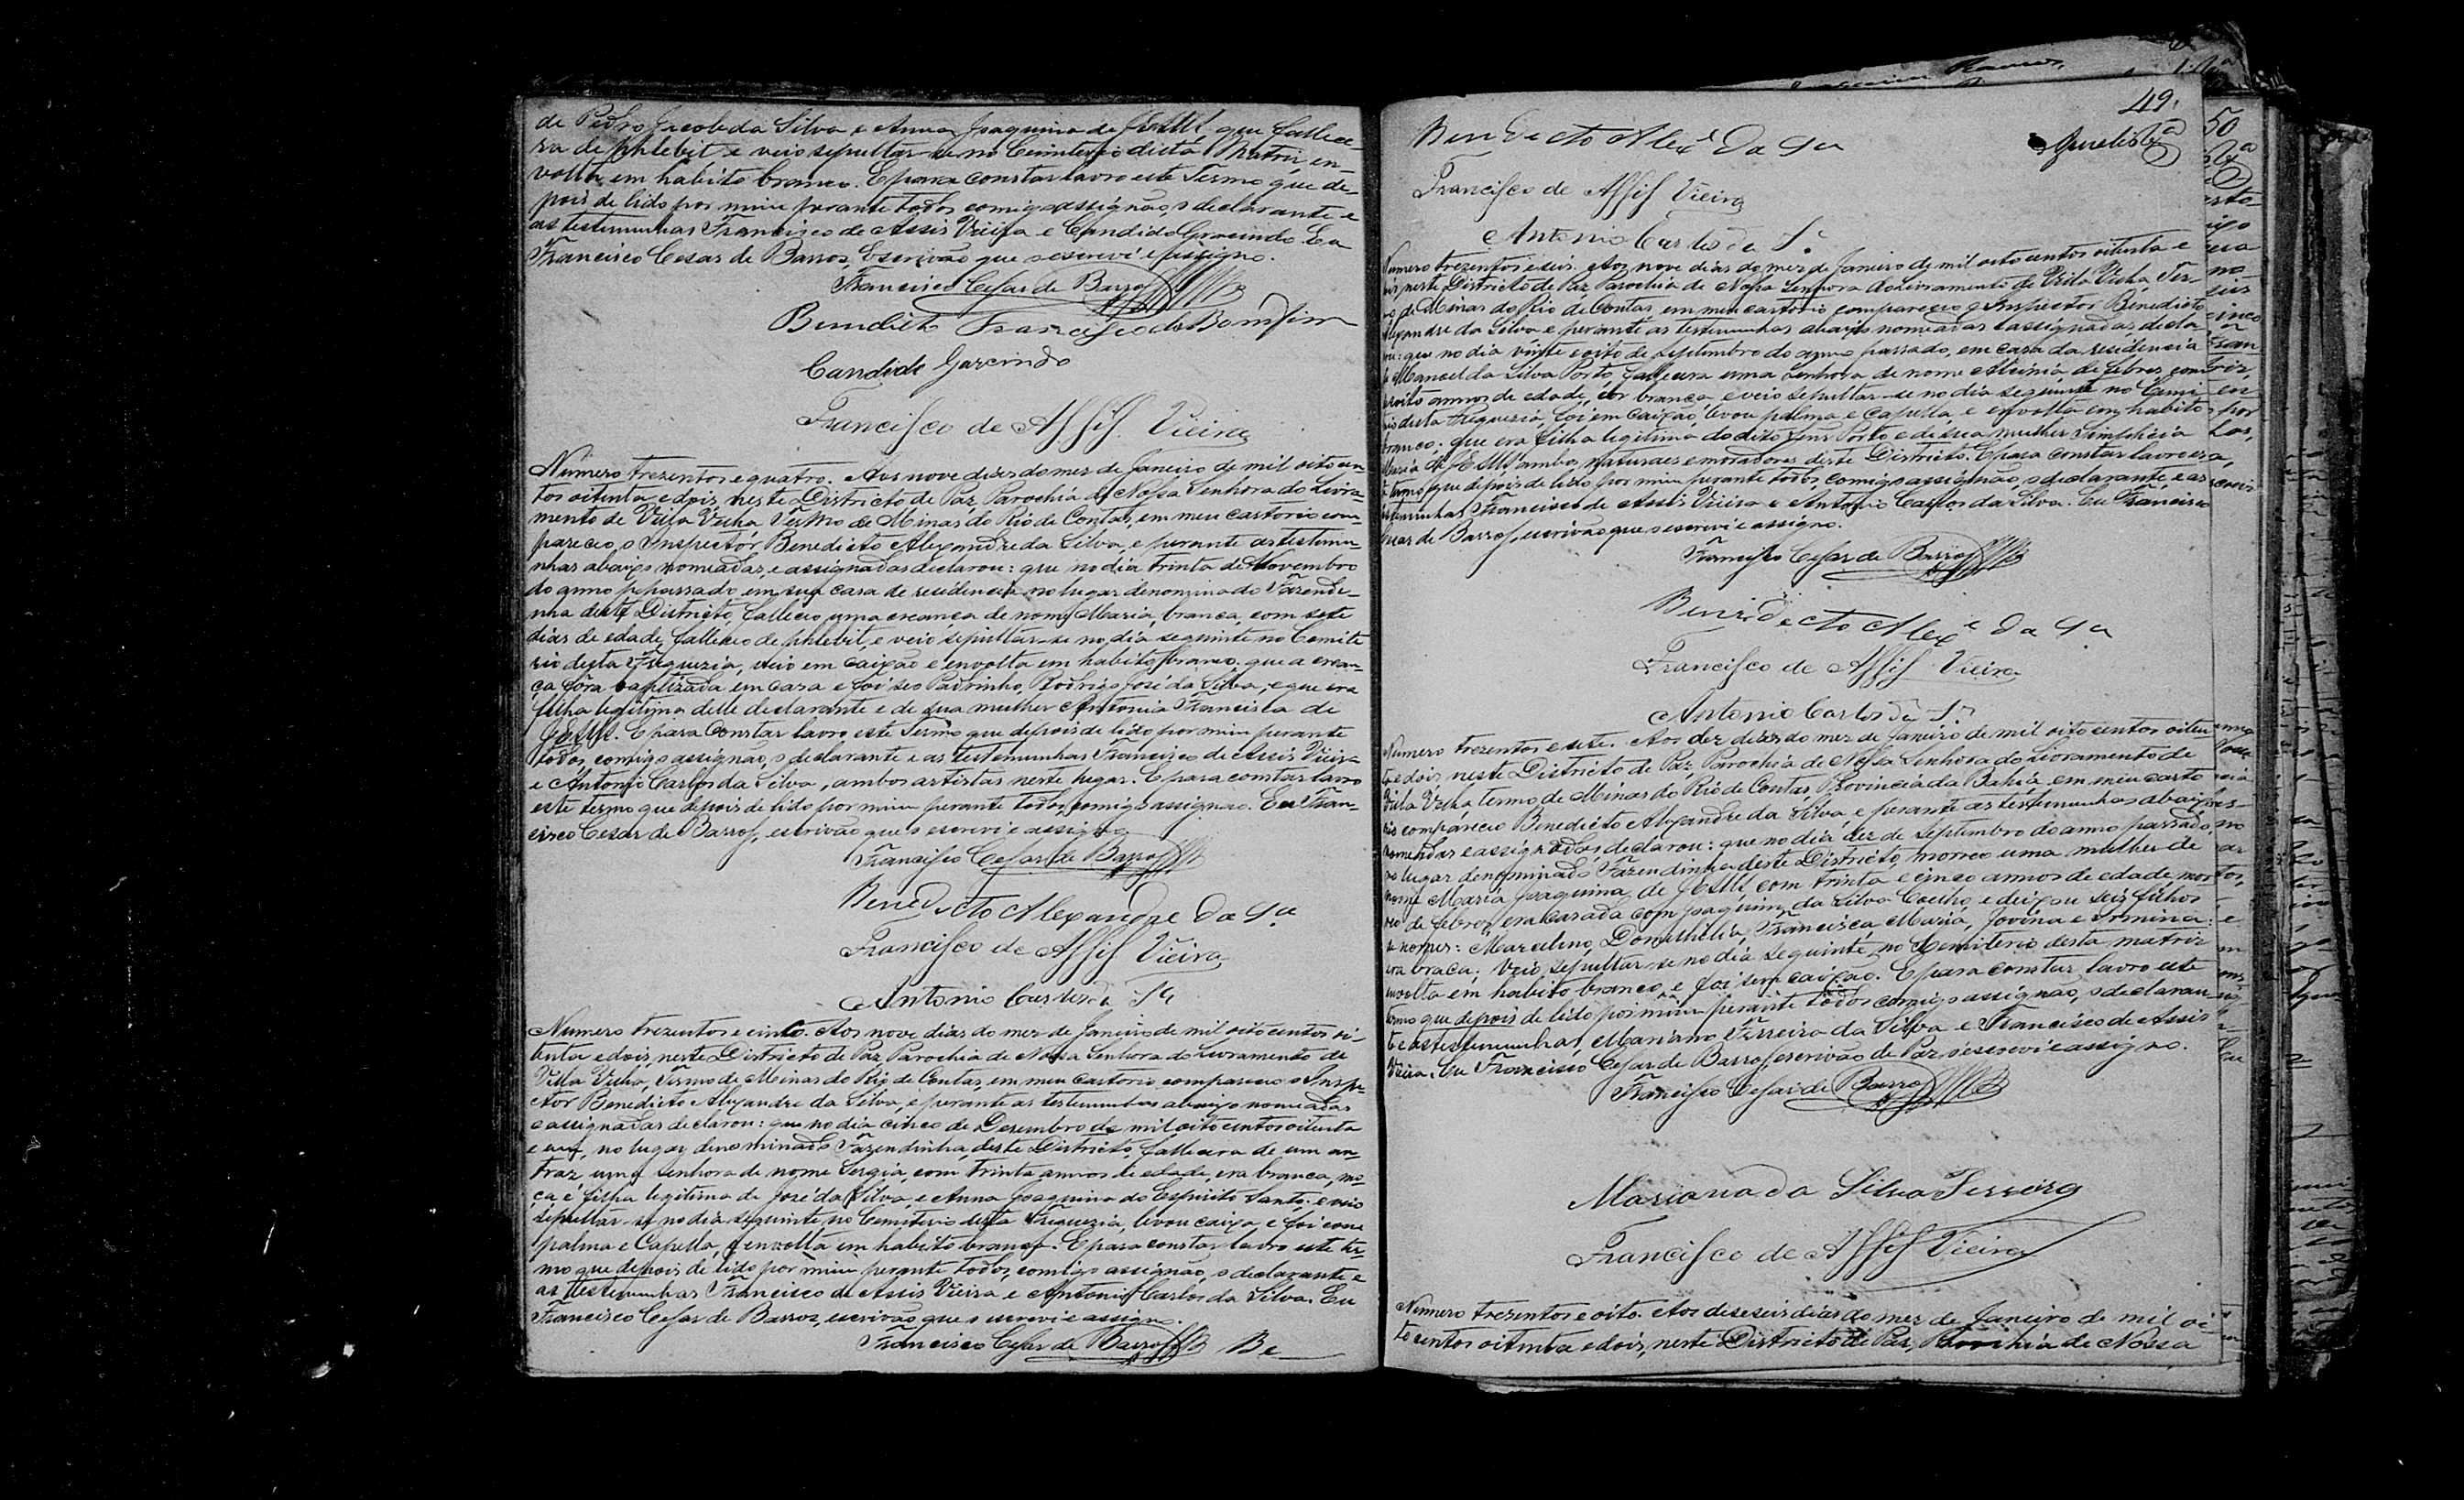 de Pedro Jacob da Silva e Anna Joaquina de Jesus, que fallece-
ra de phlebit e veio sepultar-se no Cemiterio desta Matriz, en-
volta em habito branco. E para constar lavro este Termo que de-
pois de lido por mim perante todos comigo assignão, o declarante e
as testemunhas Francisco de Assis Vieira e Candido Gracindo. Eu
Francisco Cesar de Barros, Escrivão que o escrevi e assigno.
Francisco Cesar de Barros
Benedicto Francisco do Bomfim
Candido Garcindo
Francisco de Assis Vieira
Numero trezentos e quatro. Aos nove dias do mez de Janeiro de mil oito cen-
tos oitenta e dois, neste Districto de Paz, Parochia de Nossa Senhora do Livra-
mento de Villa Velha, Termo de Minas do Rio de Contas, em meu cartorio com-
pareceo, o Inspector Benedicto Alexandre da Silva, e perante as testemu-
nhas abaixo nomeadas, e assignadas declarou: que no dia trinta de Novembro
do anno p. passado em sua casa de residencia no lugar denominado Fazendi-
nha deste Districto, falleceo uma creança de nome Maria, branca, com sete
dias de edade, falleceo de phlebit, e veio sepultar-se no dia seguinte no Cemite
rio desta Freguezia, veio em caixão e envolta em habito branco. que a crean-
ça fôra baptizada em casa e foi seo Padrinho, Rodrigo José da Silva, e que era
filha legitima delle declarante e de sua mulher Antonia Francisca de
Jesus. E para constar lavro este Termo que depois de lido por mim perante
todos, comigo assignão, o declarante e as testemunhas Francisco de Assis Vieira
e Antonio Carlos da Silva, ambos artistas neste lugar. E para constar lavro
este termo que depois de lido por mim perante todos, comigo assignão. Eu Fran-
cisco Cesar de Barros, escrivão que o escrevi e assigno.
Francisco Cesar de Barros
Benedicto Alexandre da Sa
Francisco de Assis Vieira
Antonio Carlos da Sa
Numero trezentos e cinco. Aos nove dias do mez de Janeiro de mil oito centos oi-
tenta e dois, neste Districto de Paz, Parochia de Nossa Senhora do Livramento de
Villa Velha, Termo de Minas do Rio de Contas, em meu cartorio compareceo o Inspe-
ctor Benedicto Alexandre da Silva, e perante as testemunhas abaixo nomeadas
e assignadas declarou: que no dia cinco de Desembro de mil oito centos oitenta
e um, no lugar denominado Fazendinha, deste Districto, fallecera de um an-
traz, uma senhora de nome Sergia, com trinta annos de edade, era branca, mo-
ça e filha legitima de José da Silva, e Anna Joaquina do Espirito Santo. e veio
sepultar-se no dia seguinte no Cemiterio desta Freguezia, levou caixa, e foi com
palma e Capella, e envolta em habito branco. E para constar lavro este ter-
mo que depois de lido por mim perante todos, comigo assignão, o declarante e
as testemunhas Francisco de Assis Vieira e Antonio Carlos da Silva. Eu
Francisco Cesar de Barros, escrivão que o escrevi e assigno.
Francisco Cesar de Barros Be
49.
Benedicto Alexe da Sa
Francisco de Assis Vieira
Antonio Carlos da Sa
Numero trezentos e seis. Aos nove dias do mez de Janeiro de mil oito centos oitenta e
dois, neste Districto de Paz, Parochia de Nossa Senhora do Livramento de Villa Velha, Ter-
mo de Minas do Rio de Contas, em meu cartorio compareceo o Inspector Benedicto
Alexandre da Silva e perante as testemunhas abaixo nomeadas e assignadas, decla-
rou: que no dia vinte e oito de Septembro do anno passado, em casa da residencia
de Manoel da Silva Porto, fallecera uma Senhora de nome de febres, com
annos de edade, côr branca, e veio sepultar-se no dia seguinte no Cemi-
rio desta Freguezia, foi em caixão, levou palma e capella, e envolta em habito
branco; que era filha legitima do dito Snr. Porto e de sua mulher Simplicia
Maria de Jesus, ambos naturaes e moradores deste Districto. E para constar lavro es-
te termo, que depois de lido por mim perante todos, comigo assignão, o declarante, e as
testemunhas Francisco de Assis Vieira e Antonio Carlos da Silva. Eu Francisco
Cesar de Barros, escrivão que o escrevi e assigno.
Francisco Cesar de Barros
Benedicto Alexe da Sa
Francisco de Assis Vieira
Antonio Carlos da Sa
Numero trezentos e sete. Aos dez dias do mez de Janeiro de mil oito centos oiten-
ta e dois, neste Districto de Paz, Parochia de Nossa Senhora do Livramento de
Villa Velha, termo de Minas do Rio de Contas, Provincia da Bahia, em meu carto
rio compareceo Benedicto Alexandre da Silva, e perante as testemunhas abaixo
nomeadas e assignadas, declarou: que no dia dez de Septembro do anno passado,
no lugar denominado Fazendinha deste Districto, morreo uma mulher de
nome Maria Joaquina de Jesus, com trinta e cinco annos de edade, mor
reo de febres, era casada com Joaquim da Silva Coelho, e deixou seis filhos
de nomes: Marcelino, Domithilia, Francisca, Maria, Jovina e Irminia:
era braca. Veio sepultar-se no dia seguinte no Cemiterio desta matriz
envolta em habito branco, e foi sem caixão. E para constar lavro este
termo que depois de lido por mim perante todos comigo assignão, o declaran-
te e as testemunhas, Mariano Ferreira da Silva e Francisco de Assis
Vieira. Eu Francisco Cesar de Barros, escrivão de Paz o escrevi e assigno.
Francisco Cesar de Barros
Mariano da Silva Ferreira
Francisco de Assis Vieira
Numero trezentos e oito. Aos deseseis dias do mez de Janeiro de mil oi-
to centos oitenta e dois, neste Districto de Paz, Parochia de Nossa
50